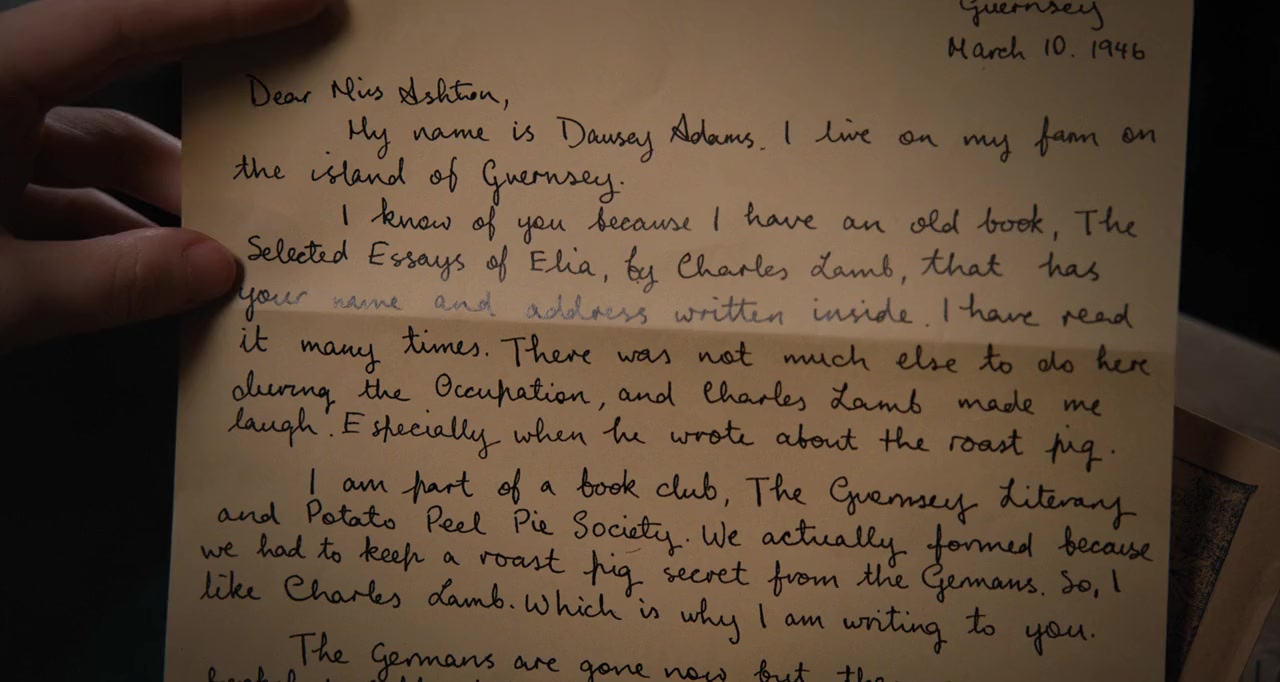 Guernsey
March 10. 1946
Dear Miss Ashton,
My name is Dawsey Adams. I live on my farm on
the island of Guernsey.
I know of you because I have an old book, The
Selected Essays of Elia, by Charles Lamb, that has
your name and address written inside. I have read
it many times. There was not much else to do here
during the Occupation, and Charles Lamb made me
laugh. Especially when he wrote about the roast pig.
I am part of a book club, The Guernsey Literary
and Potato Peel Pie Society. We actually formed because
we had to keep a roast pig secret from the Germans. So, I
like Charles Lamb. Which is why I am writing to you.
The Germans are gone now but